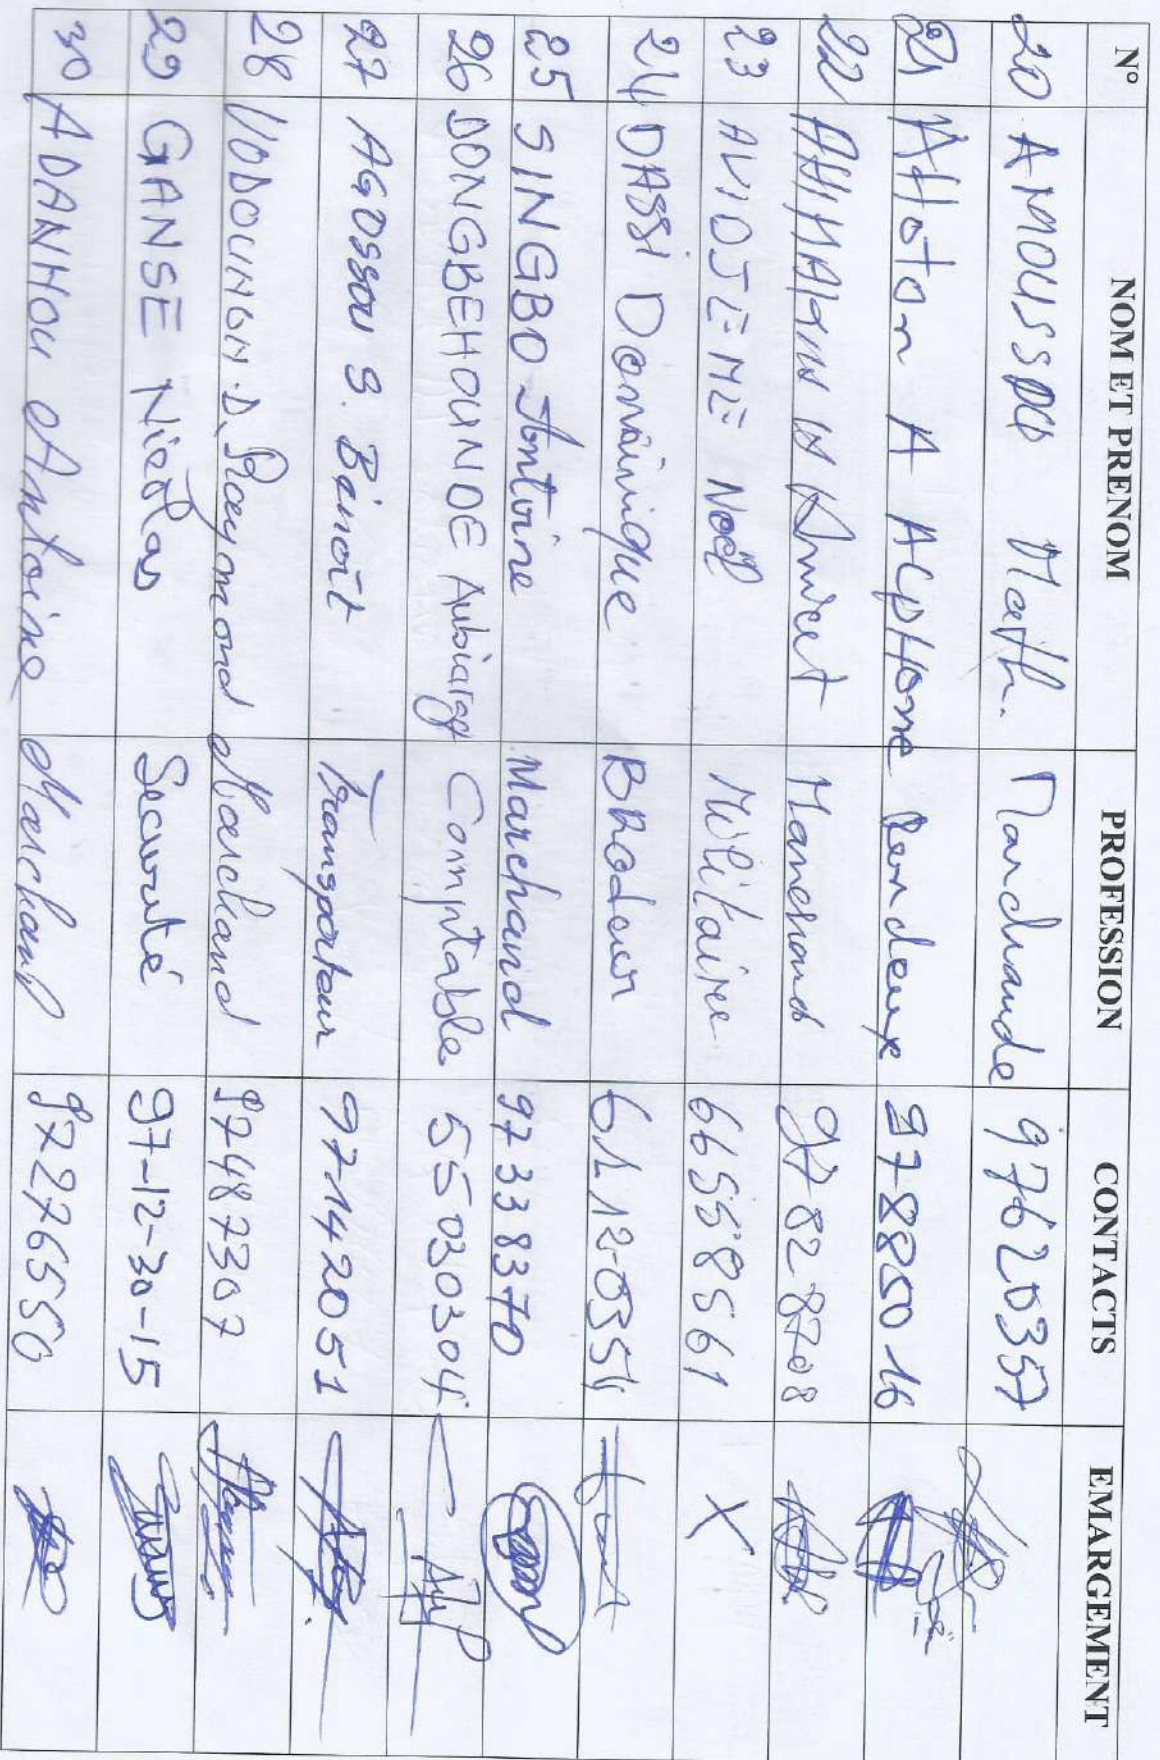 N° NOM ET PRENOM PROFESSION CONTACTS EMARGEMENT
20 AMOUSSOU Math. Marchande 97620357
21 AHoton A AlpHonse 97888016
22 Anicet Marchand 97 82 8708
23 AVIDJEME Noël Militaire 66558561 X
24 DASSI Dominique BRodeur 61120354
25 SINGBO Antoine Marchand 97338370
26 DONGBEHOUNDE Comptable 55030304
27 AGOSSOU S. Bénoît Transporteur 97142051
28 VODOUNON D. Raymond Marchand 97487307
29 GANSE Nicolas Securité 97-12-30-15
30 ADANHOU Antoine Marchand 97276550